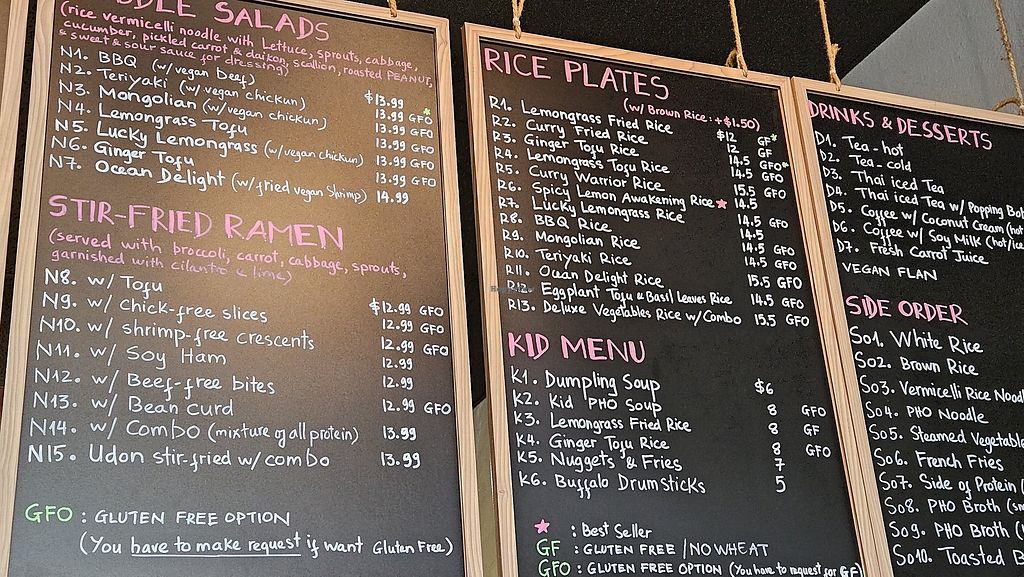 NOODLE SALADS
(rice vermicelli noodle with Lettuce, sprouts, cabbage,
cucumber, pickled carrot & daikon, scallion, roasted PEANUT,
& sweet & sour sauce for dressing)
N1. BBQ (w/vegan beef) $13.99
N2. Teriyaki (w/vegan chickun) 13.99 GFO
N3. Mongolian (w/vegan chickun) 13.99 GFO
N4. Lemongrass Tofu 13.99 GFO
N5. Lucky Lemongrass (w/vegan chickun) 13.99 GFO
N6. Ginger Tofu 13.99 GFO
N7. Ocean Delight (w/fried vegan shrimp) 14.99
STIR-FRIED RAMEN
(served with broccoli, carrot, cabbage, sprouts,
garnished with cilantro & lime)
N8. w/ Tofu $12.99 GFO
N9. w/ Chick-free slices 12.99 GFO
N10. w/ shrimp-free crescents 12.99 GFO
N11. w/ Soy Ham 12.99
N12. w/ Beef-free bites 12.99 GFO
N13. w/ Bean curd
N14. w/ Combo (mixture of all protein) 13.99
N15. Udon stir-fried w/ combo 13.99
GFO : GLUTEN FREE OPTION
(You have to make request if want Gluten Free)
RICE PLATES
(w/ Brown Rice : +$1.50)
R1. Lemongrass Fried Rice $12 GF*
R2. Curry Fried Rice 12 GF
R3. Ginger Tofu Rice 14.5 GFO*
R4. Lemongrass Tofu Rice 14.5 GFO
R5. Curry Warrior Rice 15.5 GFO
R6. Spicy Lemon Awakening Rice ★ 14.5
R7. Lucky Lemongrass Rice 14.5 GFO
R8. BBQ Rice 14.5
R9. Mongolian Rice 14.5 GFO
R10. Teriyaki Rice 14.5 GFO
R11. Ocean Delight Rice 15.5 GFO
R12. Eggplant Tofu & Basil Leaves Rice 14.5 GFO
R13. Deluxe Vegetables Rice w/Combo 15.5 GFO
KID MENU
K1. Dumpling Soup $6
K2. Kid PHO Soup 8 GFO
K3. Lemongrass Fried Rice 8 GF
K4. Ginger Tofu Rice 8 GFO
K5. Nuggets & Fries 7
K6. Buffalo Drumsticks 5
★ : Best Seller
GF : GLUTEN FREE / NO WHEAT
GFO : GLUTEN FREE OPTION (You have to request for GF)
DRINKS & DESSERTS
D1. Tea - hot
D2. Tea - cold
D3. Thai iced Tea
D4. Thai iced Tea w/ Popping
D5. Coffee w/ Coconut Cream (hot
D6. Coffee w/ Soy Milk (hot/ice
D7. Fresh Carrot Juice
VEGAN FLAN
SIDE ORDER
So1. White Rice
So2. Brown Rice
So3. Vermicelli Rice
So4. PHO Noodle
So5. Steamed Vegetable
So6. French Fries
So7. Side of Protein (
So8. PHO Broth (
So9. PHO Broth (
So10. Toasted